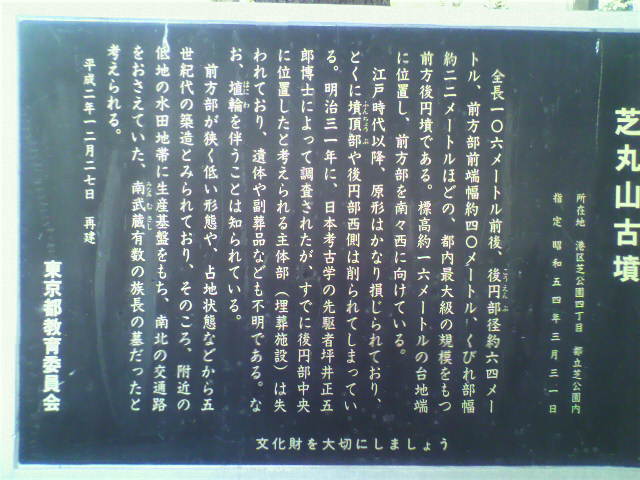 芝丸山古墳
所在地 港区芝公園四丁目 都立芝公園内
指定 昭和五四年三月三一日
全長一〇六メートル前後、後円部径約六四メー
トル、前方部前端幅約四〇メートル、くびれ部幅
約二二メートルほどの、都内最大級の規模をもつ
前方後円墳である。標高約一六メートルの台地端
に位置し、前方部を南々西に向けている。
江戸時代以降、原形はかなり損じられており、
とくに墳頂部や後円部西側は削られてしまってい
る。明治三一年に、日本考古学の先駆者坪井正五
郎博士によって調査されたが、すでに後円部中央
に位置したと考えられる主体部（埋葬施設）は失
われており、遺体や副葬品なども不明である。な
お、埴輪を伴うことは知られている。
前方部が狭く低い形態や、占地状態などから五
世紀代の築造とみられており、そのころ、附近の
低地の水田地帯に生産基盤をもち、南北の交通路
をおさえていた、南武蔵有数の族長の墓だったと
考えられる。
平成二年一二月二七日 再建
東京都教育委員会
文化財を大切にしましょう